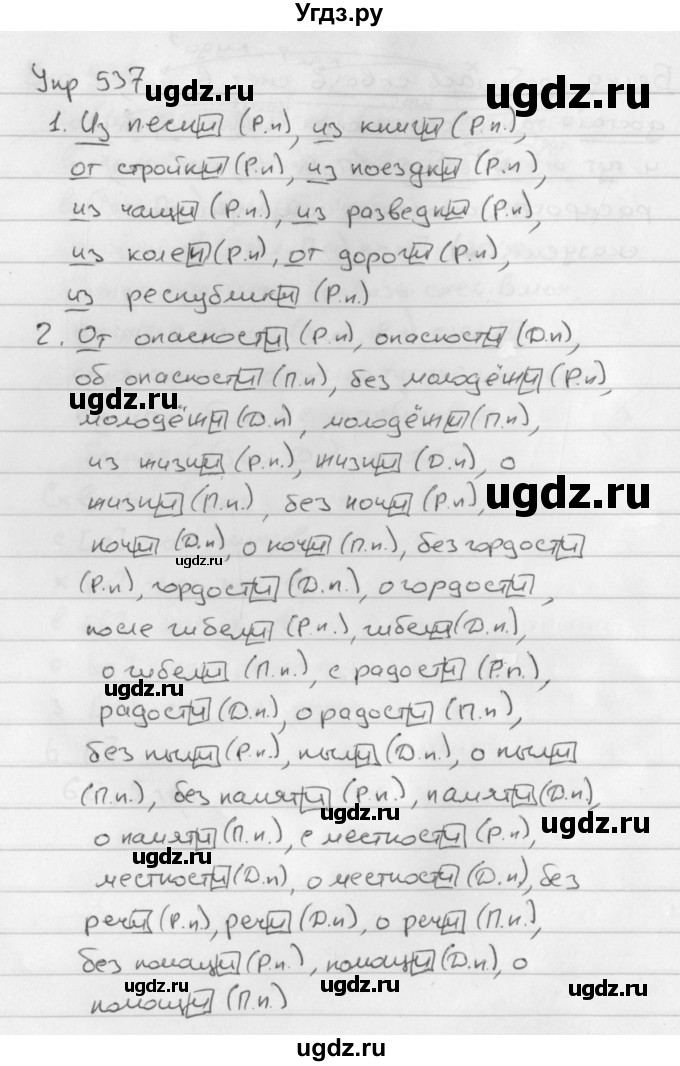 Угдз.ру
Упр 537
ugdz.ru ugdz.ru
1. Из песни (Р.п), из книги (Р.п.),
от стройки (Р.п), из поездки (Р.п),
из чащи (Р.п.), из разведки (Р.п),
из колеи (Р.п), от дороги (Р.п),
из республики (Р.п.)
2. От опасности (Р.п), опасности (Д.п),
об опасности (П.п), без молодёжи (Р.п),
ugdz.ru
молодёжи (Д.п), молодёжи (П.п),
из жизни (Р.п.), жизни (Д.п), о
жизни (П.п), без ночи (Р.п),
ugdz.ru
ночи (Д.п), о ночи (П.п), без гордости
ugdz.ru
(Р.п), гордости (Д.п.), о гордости,
после гибели (Р.п.), гибели (Д.п.),
о гибели (П.п.), с радости (Р.п.),
ugdz.ru
радости (Д.п.), о радости (П.п),
без пыли (Р.п), пыли (Д.п.), о пыли
(П.п.), без памяти (Р.п.), памяти (Д.п),
о памяти (П.п.), с местности (Р.п),
ugdz.ru ugdz.ru
местности (Д.п), о местности (Д.п), без
речи (Р.п), речи (Д.п), о речи (П.п),
без помощи (Р.п.), помощи (Д.п), о
ugdz.ru ugdz.ru ugdz.ru
помощи (П.п)
ugdz.ru